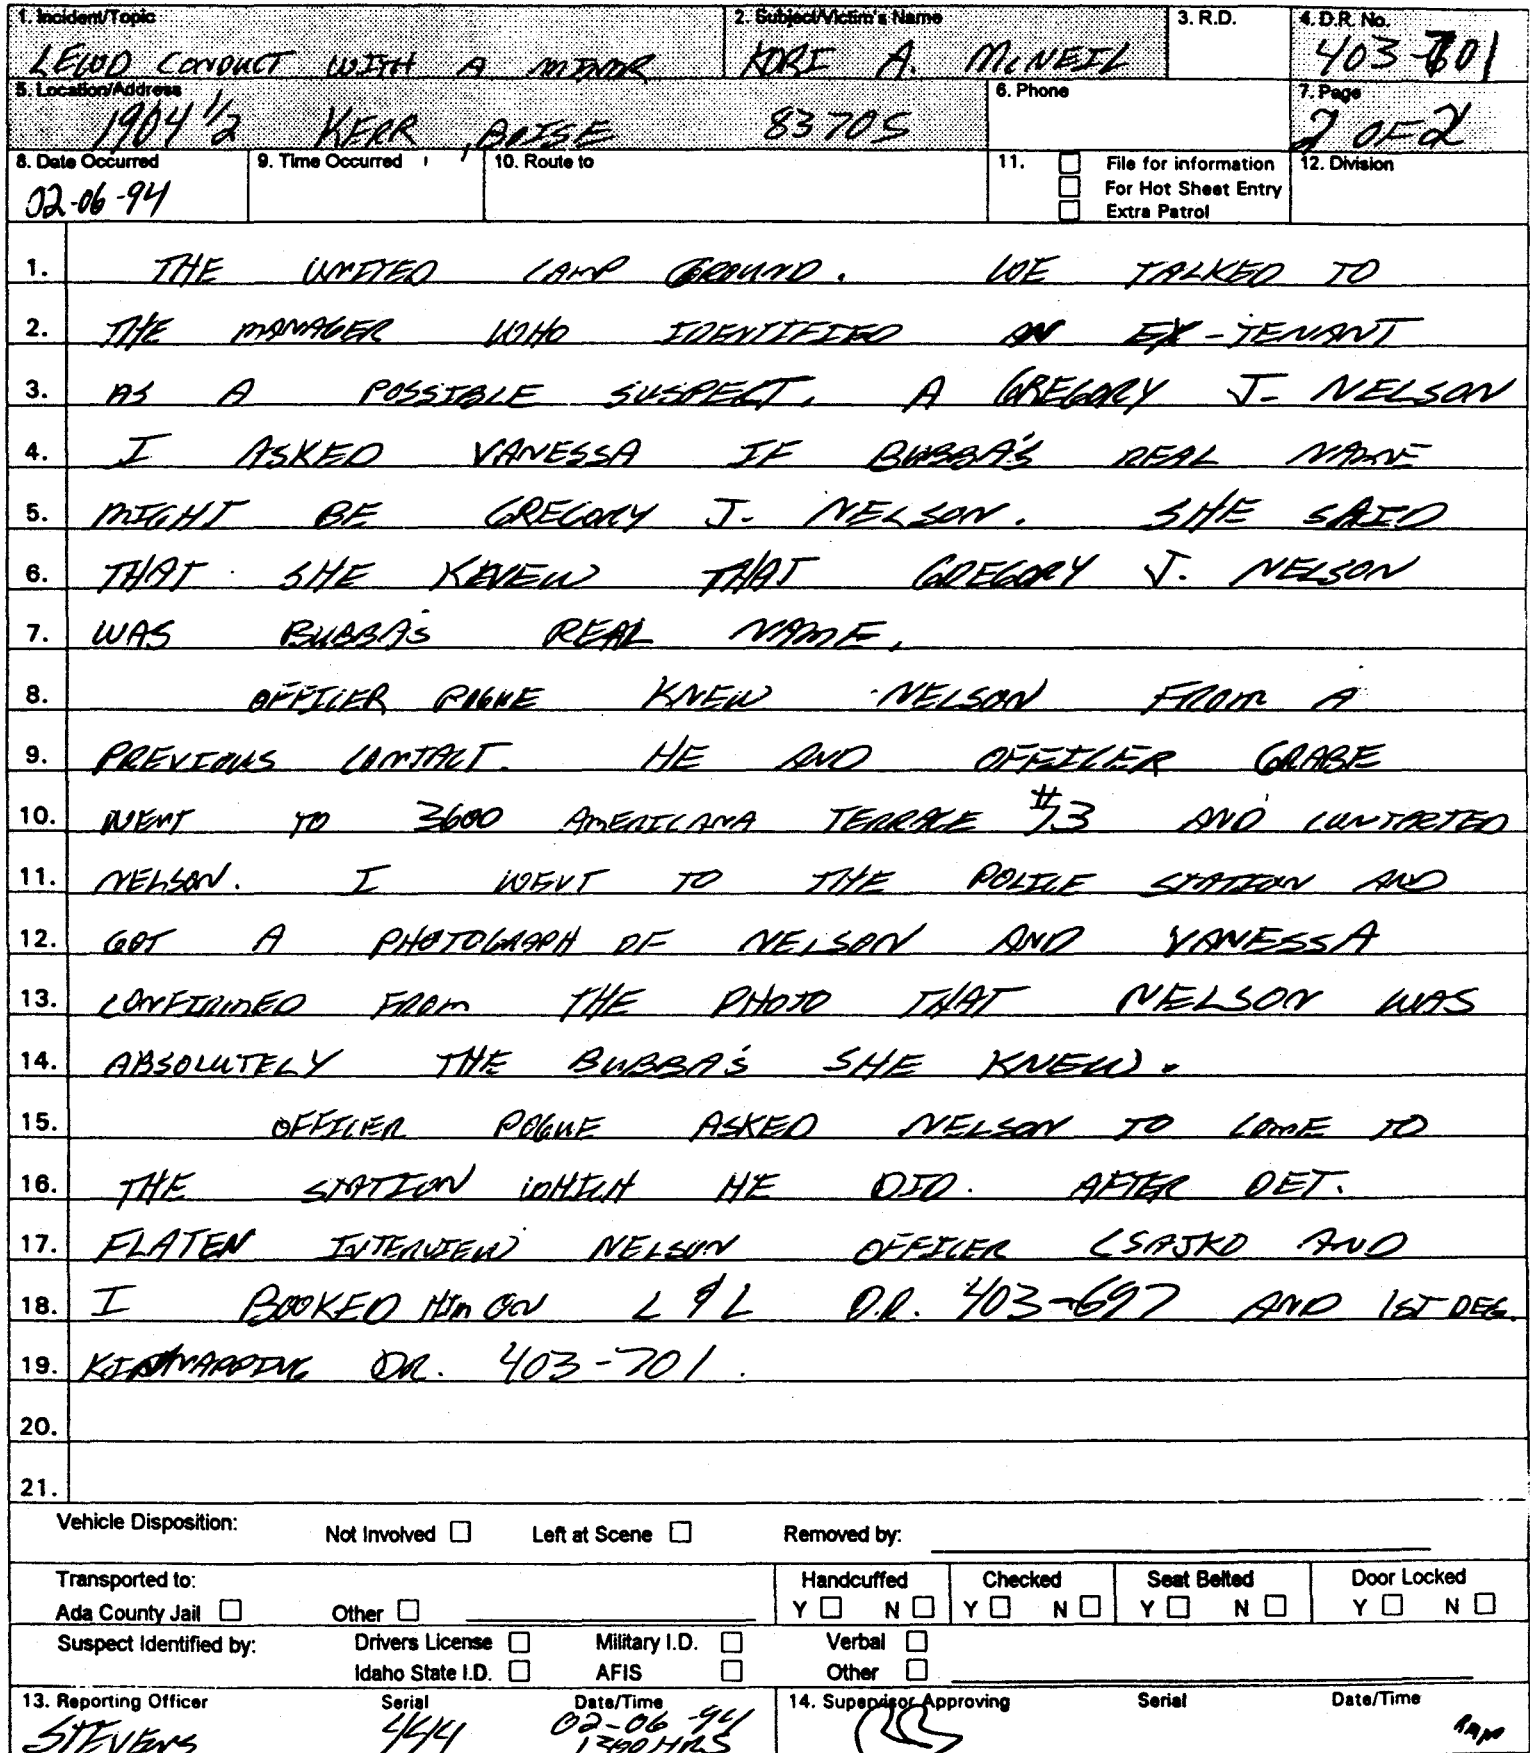 1. Incident/Topic 2. Subject/Victim's Name 3. R.D. 4. D.R. No.
LEWD CONDUCT WITH A MINOR KORI A. McNEIL 403-701
5. Location/Address 6. Phone 7. Page
1904 1/2 KERR, BOISE 83705 2 OF 2
8. Date Occurred 9. Time Occurred 10. Route to 11. ☐ File for information 12. Division
☐ For Hot Sheet Entry
02-06-94 ☐ Extra Patrol
1. THE UNITED CAMP GROUND. WE TALKED TO
2. THE MANAGER WHO IDENTIFIED AN EX-TENANT
3. AS A POSSIBLE SUSPECT. A GREGORY J. NELSON
4. I ASKED VANESSA IF BUBBA'S REAL NAME
5. MIGHT BE GREGORY J. NELSON. SHE SAID
6. THAT SHE KENEW THAT GREGORY J. NELSON
7. WAS BUBBA'S REAL NAME.
8. OFFICER POGUE KNEW NELSON FROM A
9. PREVIOUS CONTACT. HE AND OFFICER GRABE
10. WENT TO 3600 AMERICANA TERRACE #73 AND CONTACTED
11. NELSON. I WENT TO THE POLICE STATION AND
12. GOT A PHOTOGRAPH OF NELSON AND VANESSA
13. CONFIRMED FROM THE PHOTO THAT NELSON WAS
14. ABSOLUTELY THE BUBBA'S SHE KNEW.
15. OFFICER POGUE ASKED NELSON TO COME TO
16. THE STATION WHICH HE DID. AFTER DET.
17. FLATEN INTERVIEW NELSON OFFICER CSAJKO AND
18. I BOOKED HIM ON L & L D.R. 403-697 AND 1ST DEG.
19. KIDNAPPING DR. 403-701.
20.
21.
Vehicle Disposition: Not Involved ☐ Left at Scene ☐ Removed by:
Transported to: Handcuffed Checked Seat Belted Door Locked
Ada County Jail ☐ Other ☐ Y ☐ N ☐ Y ☐ N ☐ Y ☐ N ☐ Y ☐ N ☐
Suspect Identified by: Drivers License ☐ Military I.D. ☐ Verbal ☐
Idaho State I.D. ☐ AFIS ☐ Other ☐
13. Reporting Officer Serial Date/Time 14. Supervisor Approving Serial Date/Time
STEVENS 444 02-06-94
HRS